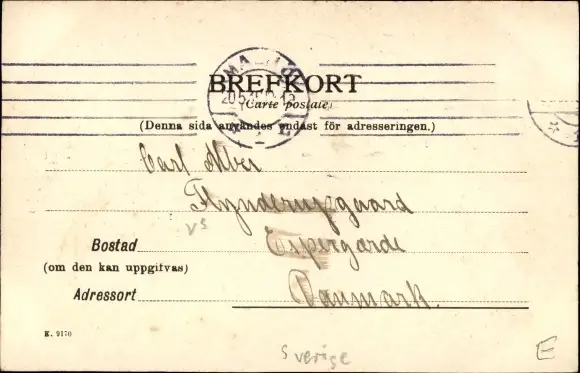 MALMÖ
BREFKORT
(Carte postale)
(Denna sida användes endast för adresseringen.)
Carl
Flynderupgaard
vs
Bostad Espergærde
(om den kan uppgifvas)
Adressort Danmark.
K. 9170
Sverige
E